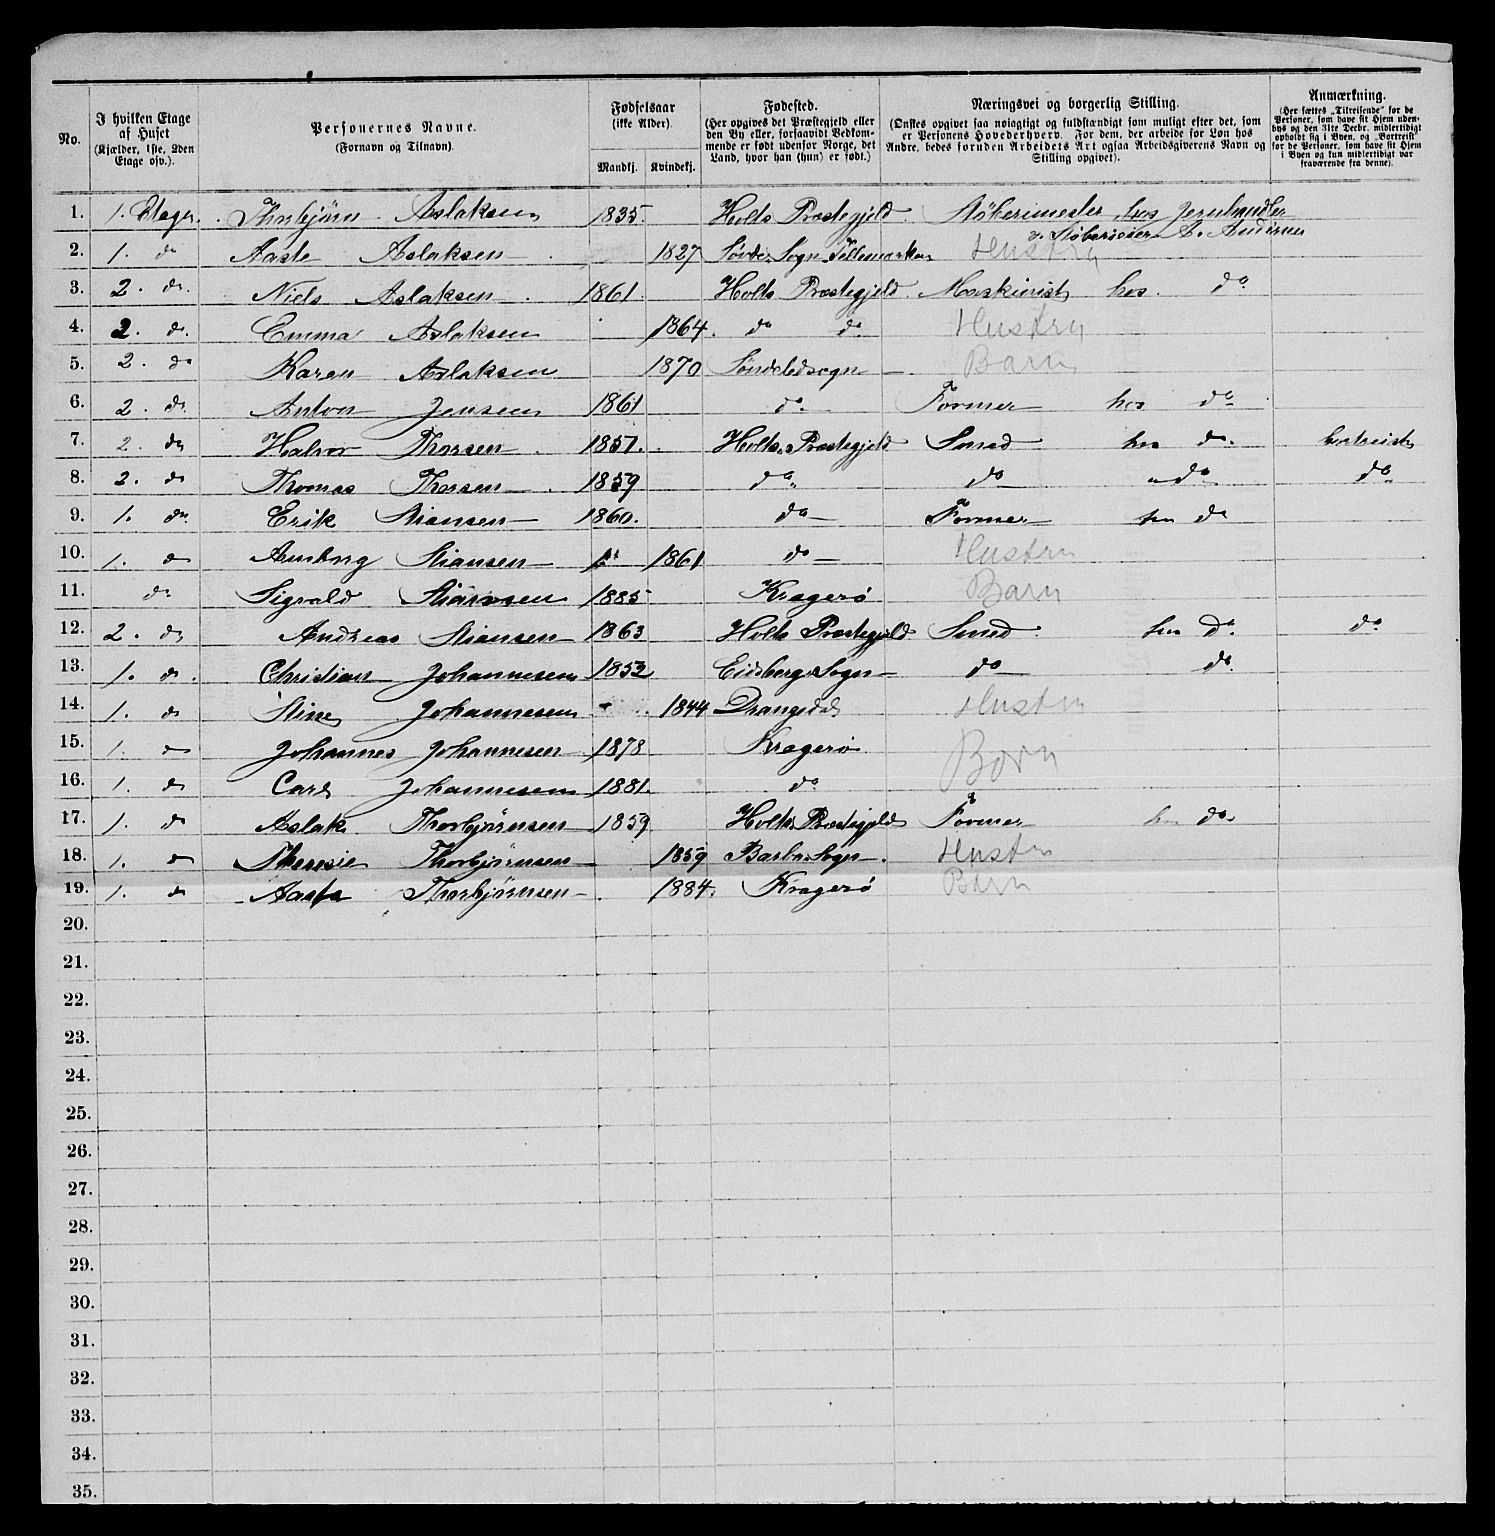 No.
I hvilken Etage af Huset (Kjælder, 1ste, 2den Etage osv.).
Personernes Navne. (Fornavn og Tilnavn)
Fødselsaar (ikke Alder).
Mandkj. Kvindekj.
Fødested. (Her opgives det Præstegjeld eller den By eller, forsaavidt Vedkommende er født udenfor Norge, det Land, hvor han (hun) er født.)
Næringsvei og borgerlig Stilling. (Ønskes opgivet saa nøiagtigt og fuldstændigt som muligt efter det, som er Personens Hovederhverv. For dem, der arbeide for Løn hos Andre, bedes foruden Arbeidets Art ogsaa Arbeidsgiverens Navn og Stilling opgivet).
Anmærkning. (Her sættes „Tilreisende" for de Personer, som have sit Hjem udenbys og den 31te Decbr. midlertidigt opholdt sig i Byen, og „Bortreist" for de Personer, som have sit Hjem i Byen og kun midlertidigt var fraværende fra denne).
1. 1. Etage. Thorbjörn Aslaksen 1835 Holts Præstegjeld Støberimester hos Jernhandler
2. 1. do Aaste Aslaksen 1827 Sogn Tellemarken Hustru
3. 2. do. Niels Aslaksen 1861 Holts Præstegjeld. Maskinist hos do
4. 2. do. Emma Aslaksen 1864. do do Hustru
5. 2. do Karen Aslaksen 1870 Søndeledsogn Barn
6. 2. do. Anton Jensen 1861 do Former hos do
7. 2. do Halvor Thorsen 1857. Holts Præstegjeld Smed hos do. bortreist
8. 2. do Thomas Thorsen 1859 do do do do
9. 1. do. Erik Stiansen 1860. do Former hos do
10. 1. do Stiansen 1861 do Hustru
11. do Sigvald Stiansen 1885 Kragerø Barn
12. 2. do Andreas Stiansen 1863 Holts Præstegjeld Smed hos do. do
13. 1. do. Christian Johannesen 1852 Eidsberg Sogn do do
14. 1. do Stine Johannesen 1844 Drangedal Hustru
15. 1. do Johannes Johannesen 1878 Kragerö Børn
16. 1. do Carl Johannesen 1881. do
17. 1. do Aslak Thorbjörnsen 1859 Holts Præstegjeld Former hos do.
18. 1. do Theresie Thorbjörnsen 1859 Barbu Sogn. Hustru
19. 1. do Aaste Thorbjörnsen 1884. Kragerö Barn
20.
21.
22.
23.
24.
25.
26.
27.
28.
29.
30.
31.
32.
33.
34.
35.